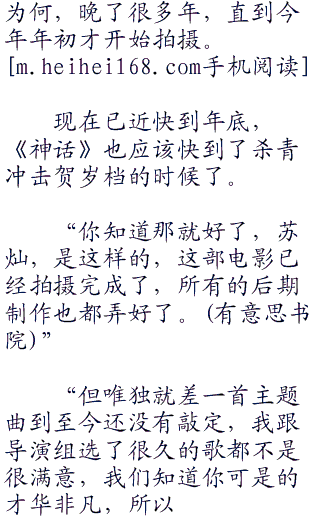 为何，晚了很多年，直到今
年年初才开始拍摄。
[m.heihei168.com手机阅读]
现在已近快到年底，
《神话》也应该快到了杀青
冲击贺岁档的时候了。
“你知道那就好了，苏
灿，是这样的，这部电影已
经拍摄完成了，所有的后期
制作也都弄好了。(有意思书
院)”
“但唯独就差一首主题
曲到至今还没有敲定，我跟
导演组选了很久的歌都不是
很满意，我们知道你可是的
才华非凡，所以